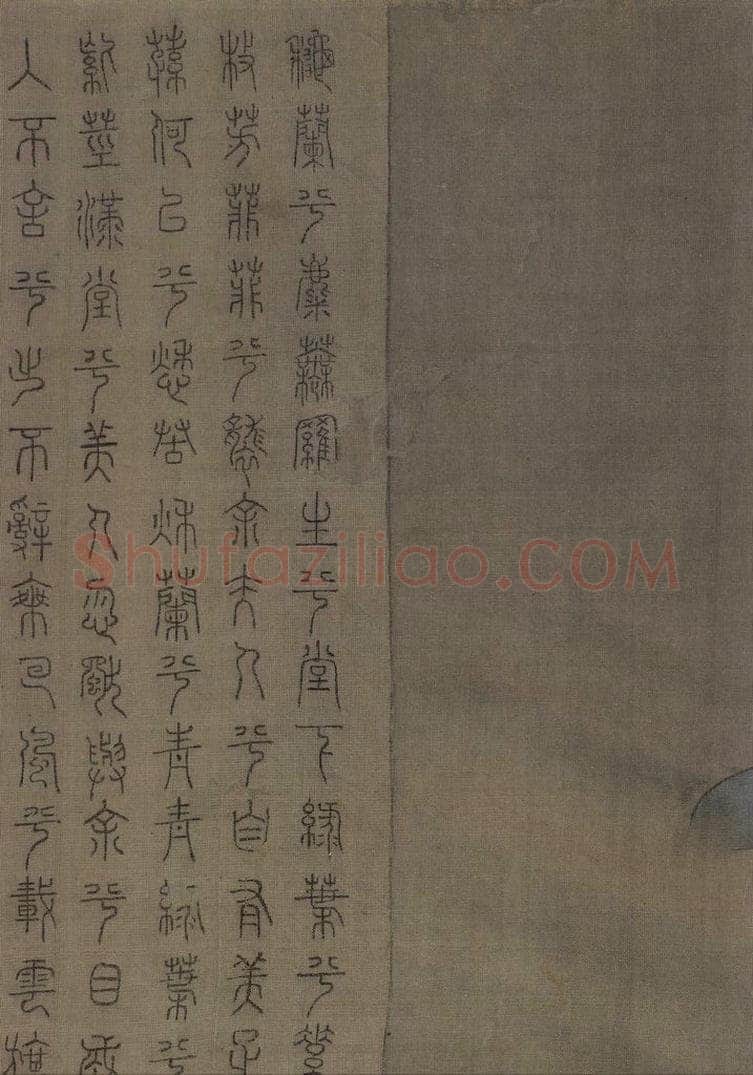 龝蘭兮麋蕪羅生兮堂下綠葉兮
枝芳菲菲兮襲余夫人兮自有美子
蓀何㠯兮愁苦秋蘭兮青青綠葉兮
紫莖滿堂兮美人忽獨與余兮目成
入不言兮出不辭乘回風兮載雲旗
Shufaziliao.COM